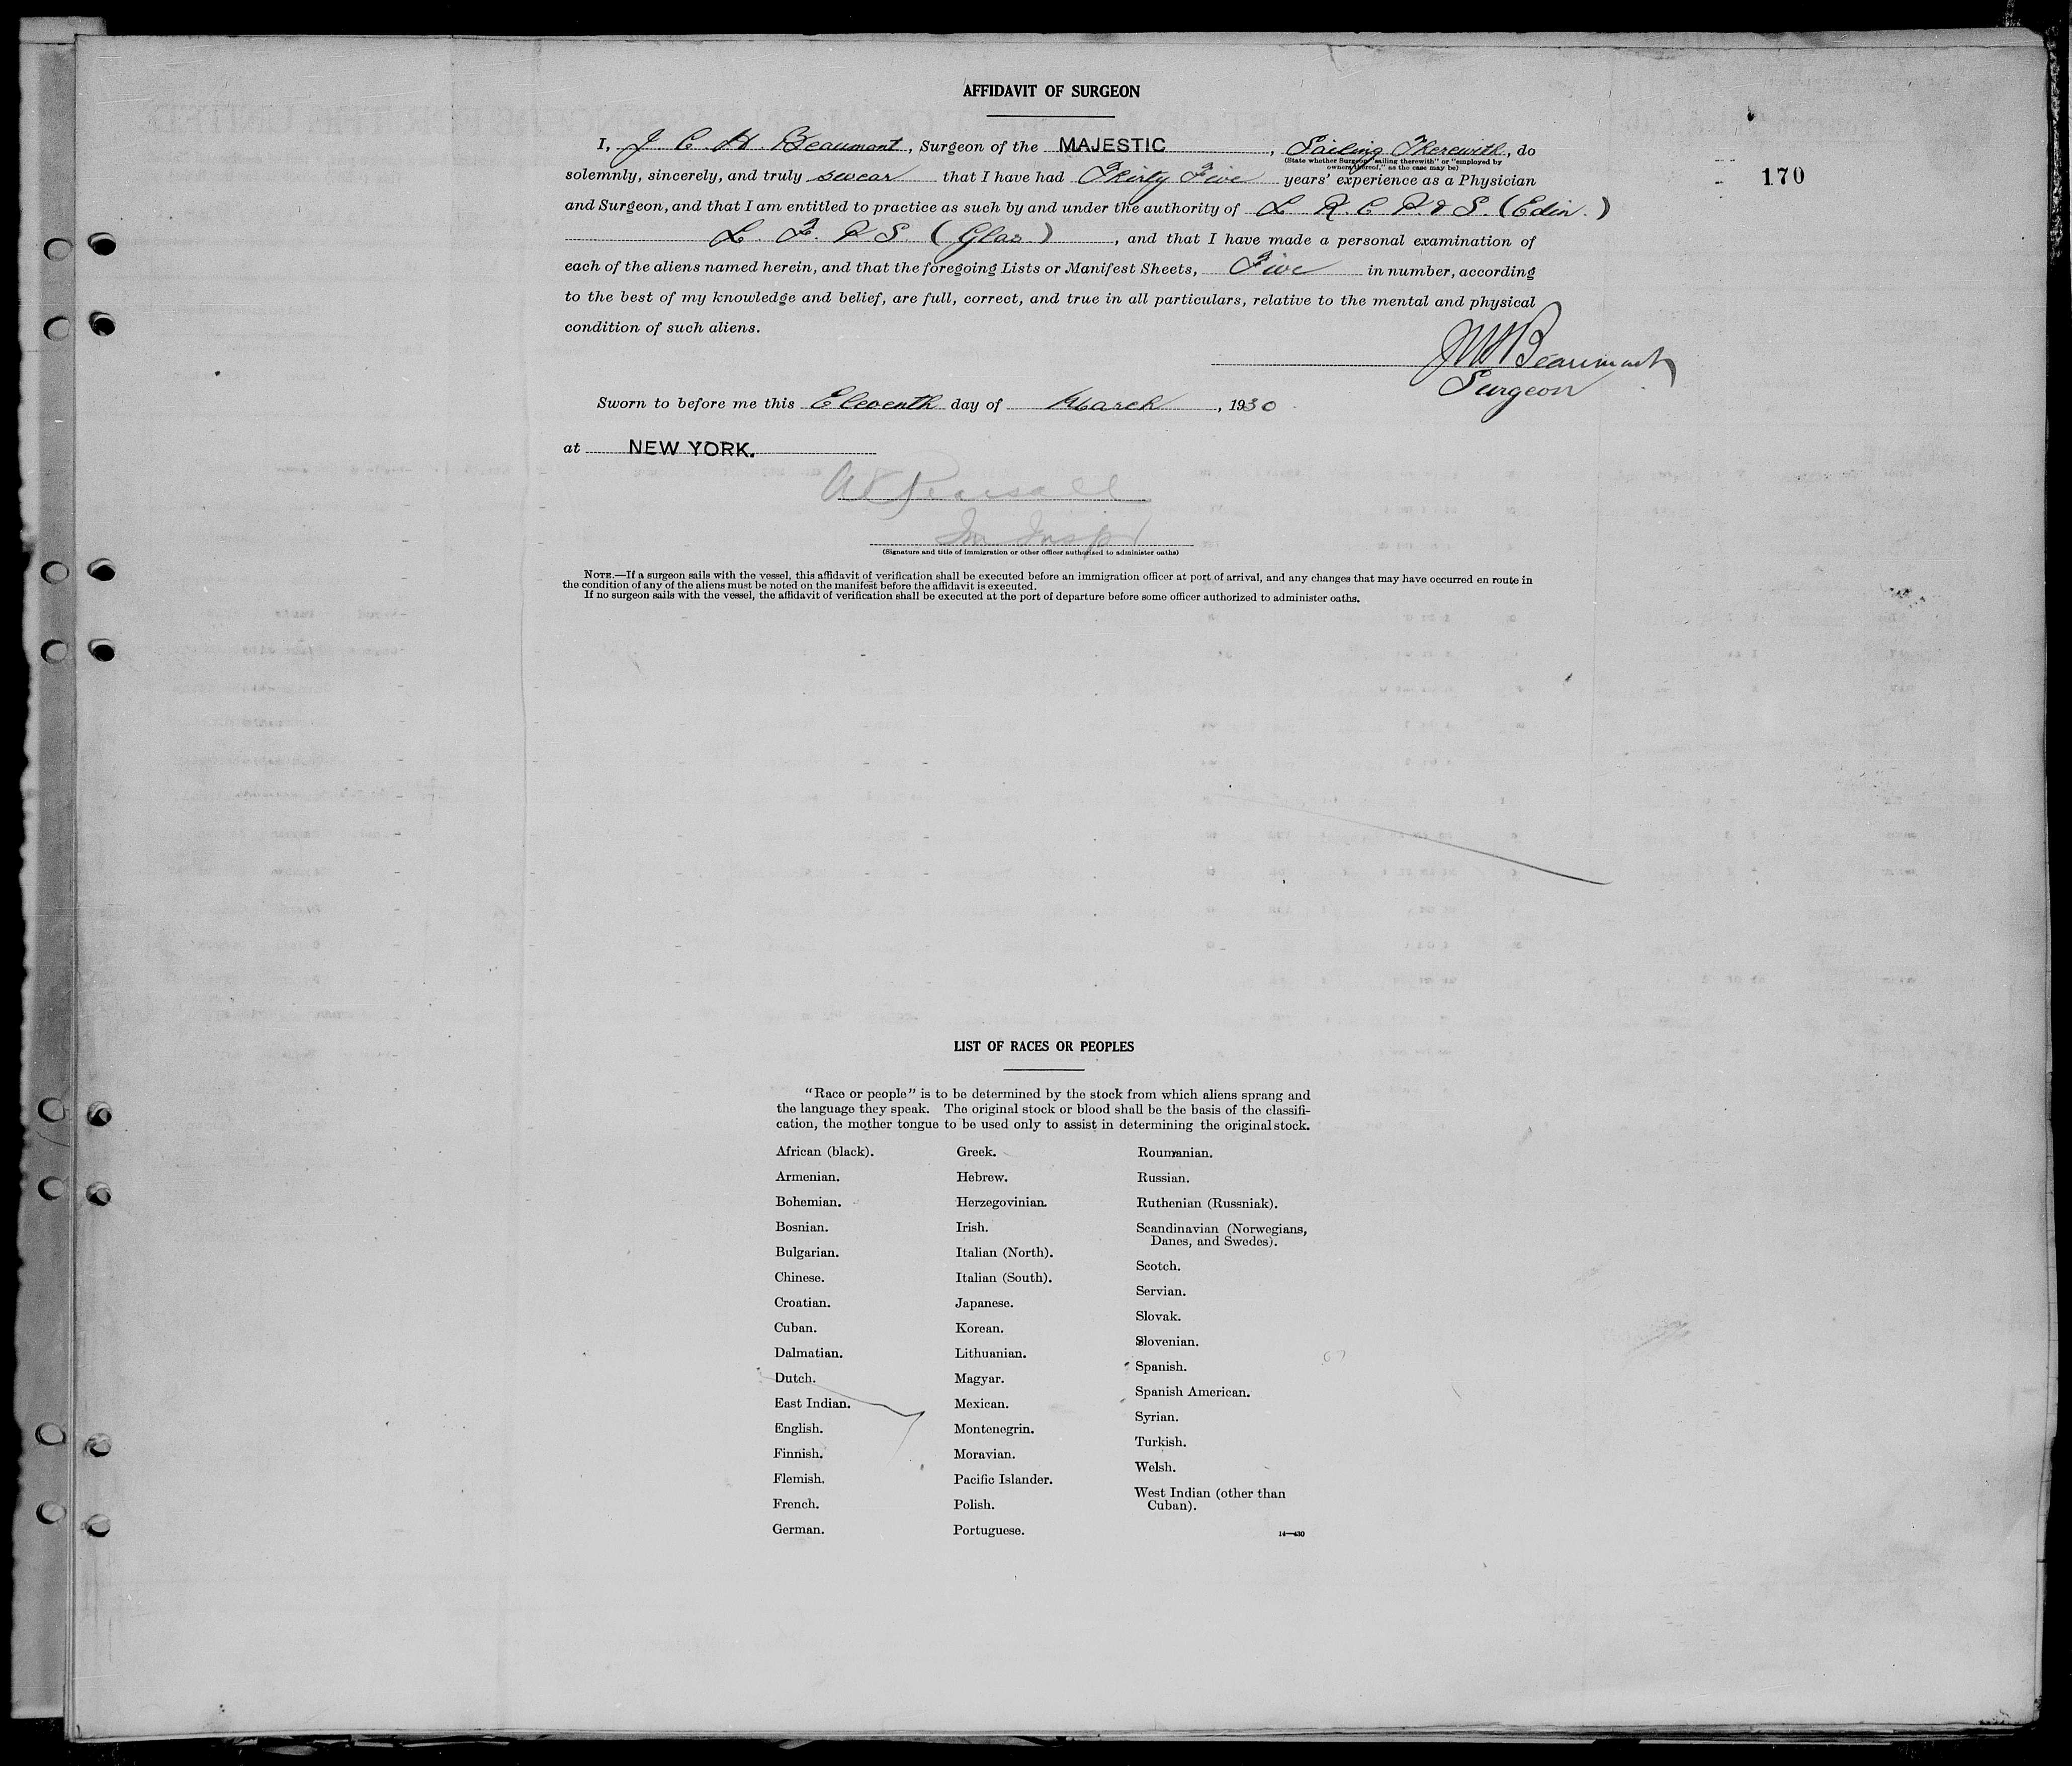 AFFIDAVIT OF SURGEON
170
I, J C H Beaumont, Surgeon of the MAJESTIC, Sailing Therewith, do
(State whether Surgeon "sailing therewith" or "employed by
owners thereof," as the case may be)
solemnly, sincerely, and truly swear that I have had Thirty Five years' experience as a Physician
and Surgeon, and that I am entitled to practice as such by and under the authority of L R. C P. & S. (Edin.)
L. F. P S. (Glas), and that I have made a personal examination of
each of the aliens named herein, and that the foregoing Lists or Manifest Sheets, Five in number, according
to the best of my knowledge and belief, are full, correct, and true in all particulars, relative to the mental and physical
condition of such aliens.
Beaumont
Surgeon
Sworn to before me this Eleventh day of March, 1930
at NEW YORK.
Pearsall
Im Inspr
(Signature and title of immigration or other officer authorized to administer oaths)
NOTE.—If a surgeon sails with the vessel, this affidavit of verification shall be executed before an immigration officer at port of arrival, and any changes that may have occurred en route in
the condition of any of the aliens must be noted on the manifest before the affidavit is executed.
If no surgeon sails with the vessel, the affidavit of verification shall be executed at the port of departure before some officer authorized to administer oaths.
LIST OF RACES OR PEOPLES
"Race or people" is to be determined by the stock from which aliens sprang and
the language they speak. The original stock or blood shall be the basis of the classifi-
cation, the mother tongue to be used only to assist in determining the original stock.
African (black).
Armenian.
Bohemian.
Bosnian.
Bulgarian.
Chinese.
Croatian.
Cuban.
Dalmatian.
Dutch.
East Indian.
English.
Finnish.
Flemish.
French.
German.
Greek.
Hebrew.
Herzegovinian.
Irish.
Italian (North).
Italian (South).
Japanese.
Korean.
Lithuanian.
Magyar.
Mexican.
Montenegrin.
Moravian.
Pacific Islander.
Polish.
Portuguese.
Roumanian.
Russian.
Ruthenian (Russniak).
Scandinavian (Norwegians,
Danes, and Swedes).
Scotch.
Servian.
Slovak.
Slovenian.
Spanish.
Spanish American.
Syrian.
Turkish.
Welsh.
West Indian (other than
Cuban).
14—430